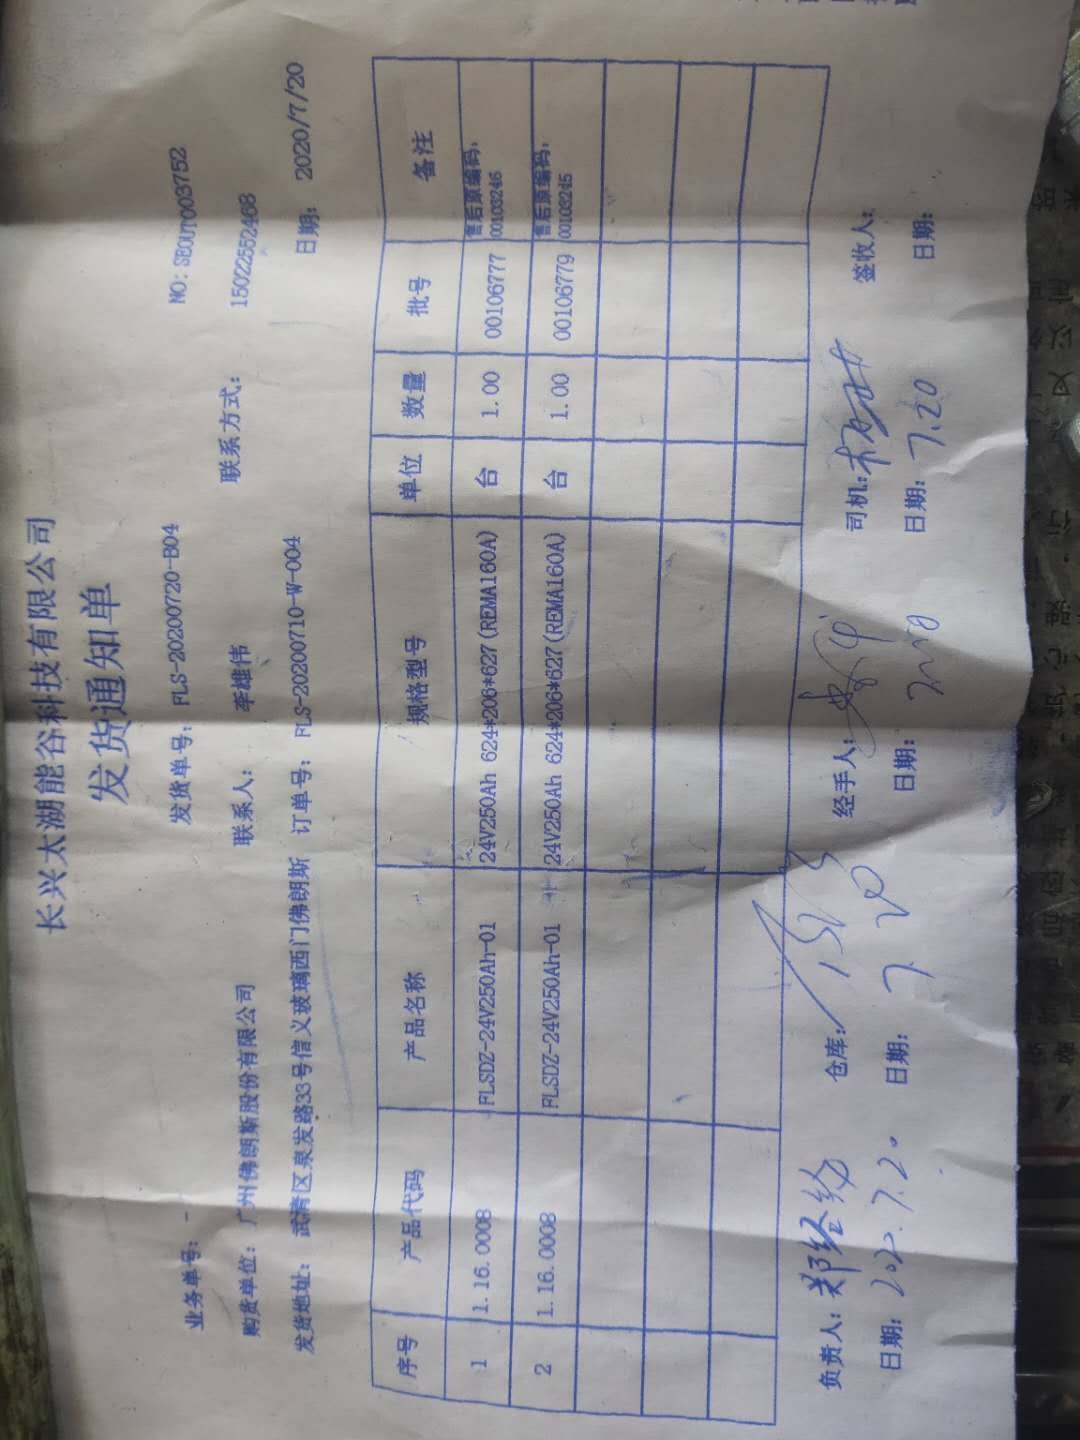 长兴太湖能谷科技有限公司
发货通知单
业务单号: - 发货单号: FLS-20200720-B04 NO: SEOUT003752
购货单位: 广州佛朗斯股份有限公司 联系人: 李雄伟 联系方式: 15022552468
发货地址: 武清区泉发路33号信义玻璃西门佛朗斯 订单号: FLS-20200710-W-004 日期: 2020/7/20
序号 产品代码 产品名称 规格型号 单位 数量 批号 备注
1 1.16.0008 FLSDZ-24V250Ah-01 24V250Ah 624*206*627(REMA160A) 台 1.00 00106777 售后原编码: 00103246
2 1.16.0008 FLSDZ-24V250Ah-01 24V250Ah 624*206*627(REMA160A) 台 1.00 00106779 售后原编码: 00103245
负责人: 郑经纶 仓库: 经手人: 司机: 签收人:
日期: 2020.7.20 日期: 7.20 日期: 日期: 7.20 日期: